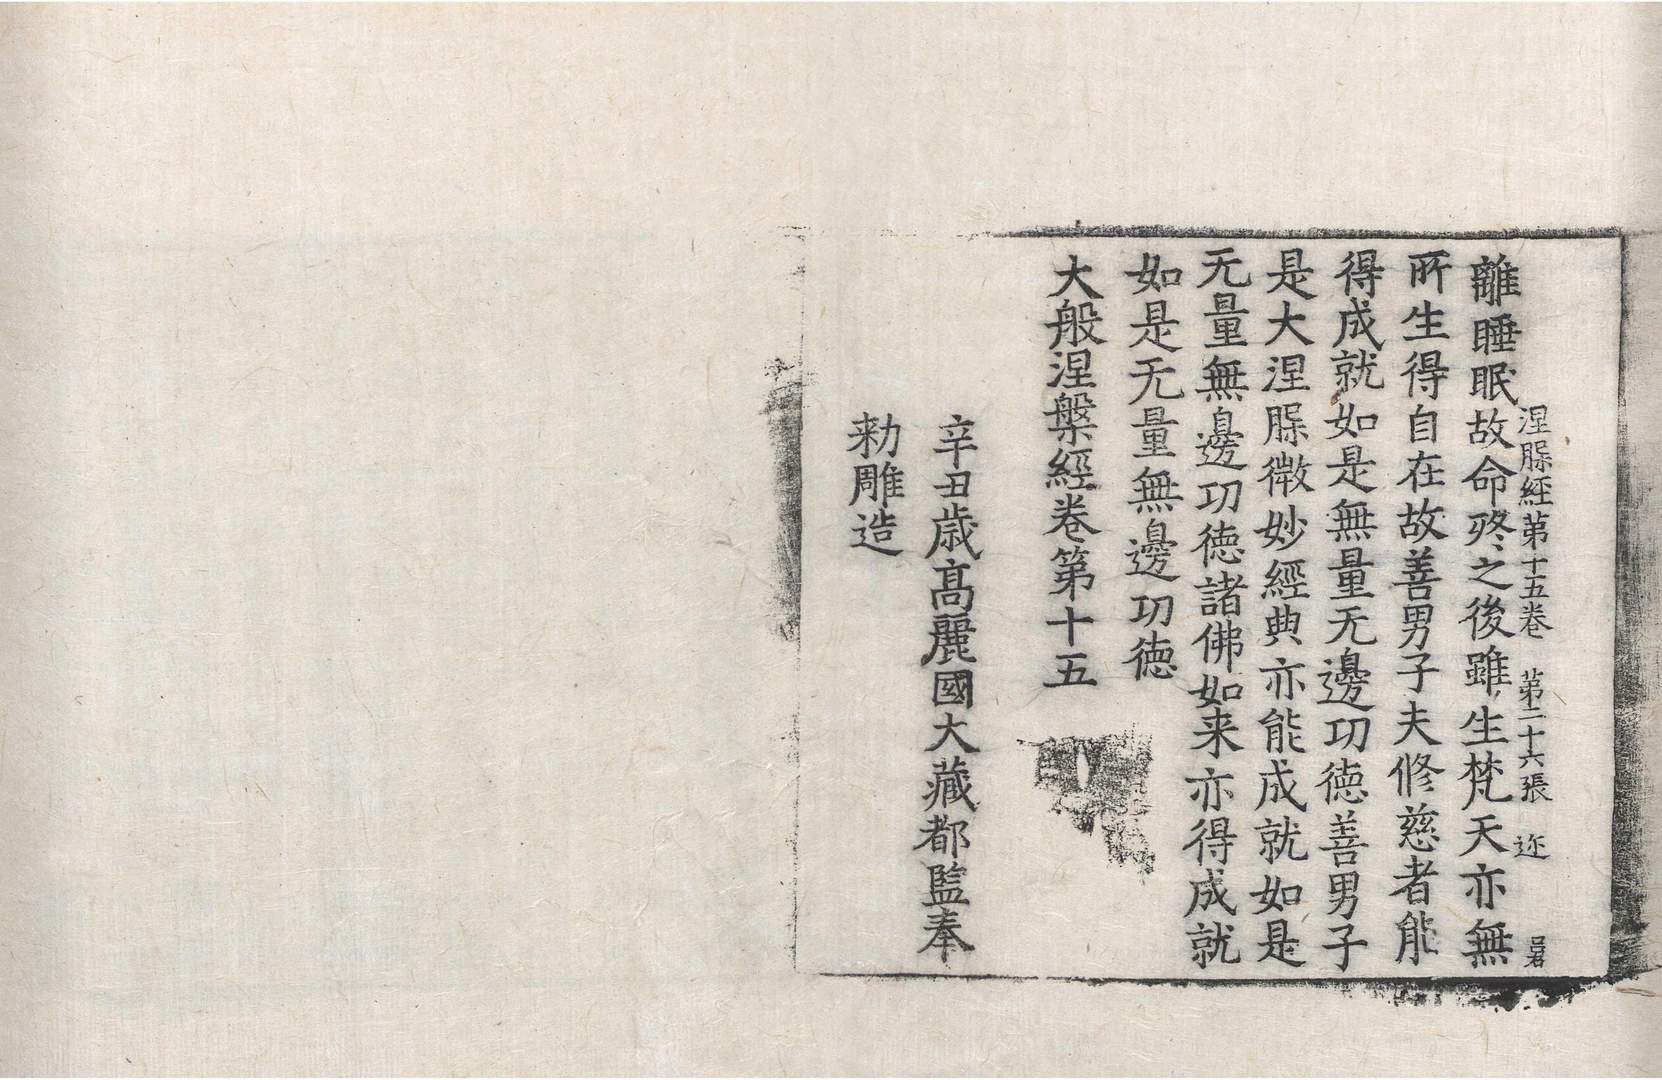 涅槃經第十五卷　第二十六張　迩
離睡眠故命終之後雖生梵天亦無
所生得自在故善男子夫修慈者能
得成就如是無量无邊功德善男子
是大涅槃微妙經典亦能成就如是
无量無邊功德諸佛如来亦得成就
如是无量無邊功德
大般涅槃經卷第十五
辛丑歳高麗國大藏都監奉
勑雕造